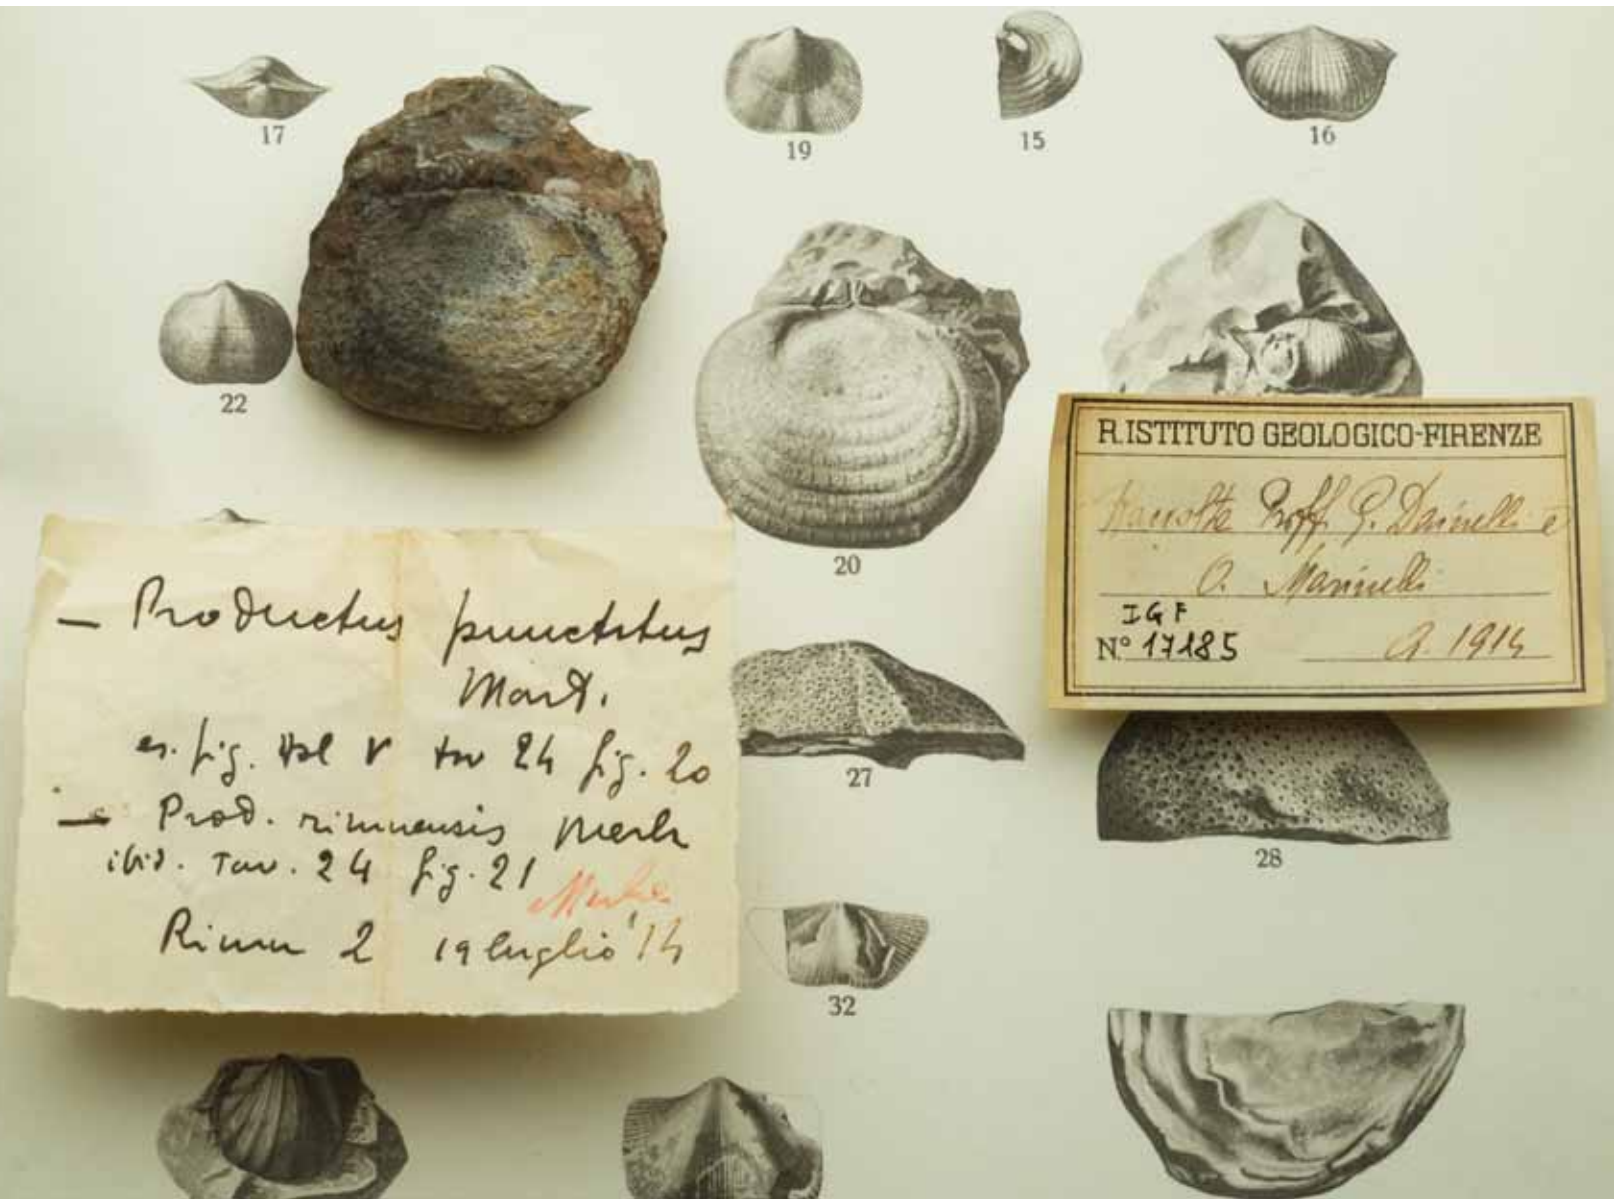 17
19
15
16
22
20
R. ISTITUTO GEOLOGICO-FIRENZE
Raccolta Proff. G. Dainelli e
O. Marinelli
IGF
N.º 17185
a. 1914
— Productus punctatus
Mart.
es. fig. Vol V tav 24 fig. 20
— Prod. rimuensis Merla
ibid. Tav. 24 fig. 21
Merla
Rimu 2 19 luglio '14
27
28
32